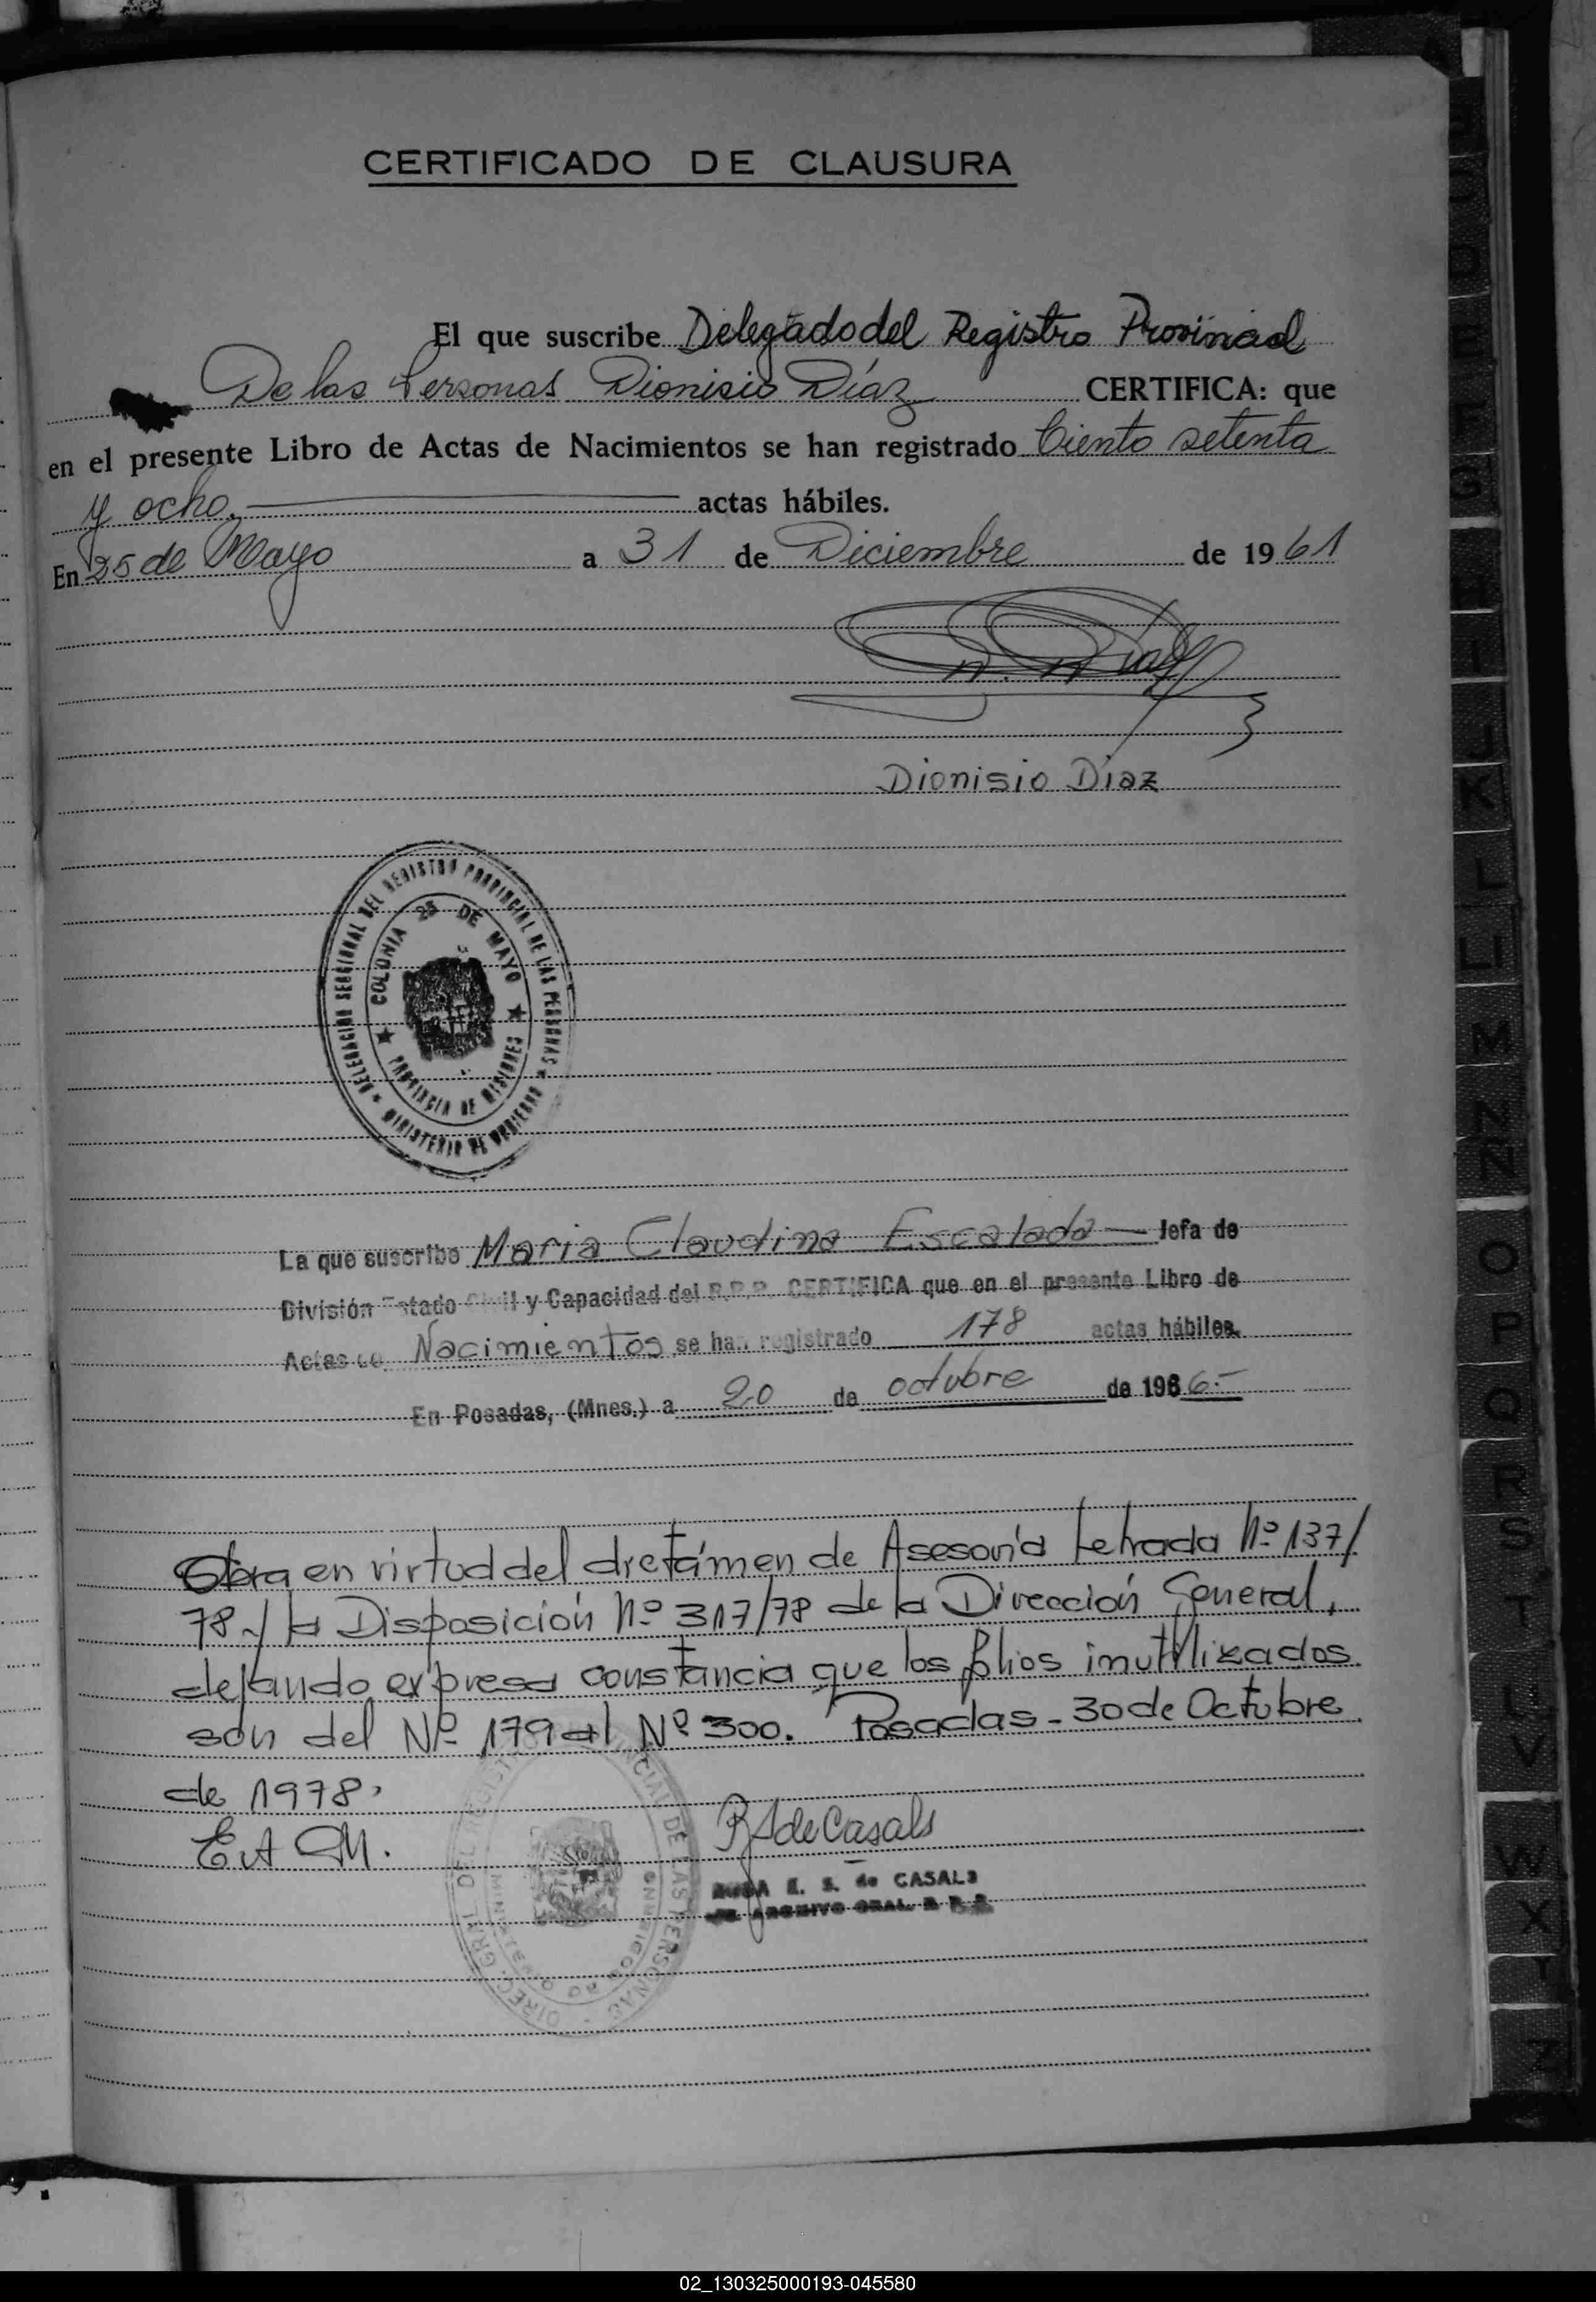 CERTIFICADO DE CLAUSURA
El que suscribe Delegado del Registro Provincial
De las Personas Dionisio Díaz CERTIFICA: que
en el presente Libro de Actas de Nacimientos se han registrado Ciento setenta
y ocho. actas hábiles.
En 25 de Mayo a 31 de Diciembre de 1961
Dionisio Díaz
DELEGACIÓN SECCIONAL DEL REGISTRO PROVINCIAL DE LAS PERSONAS
MINISTERIO DE GOBIERNO
COLONIA 25 DE MAYO
PROVINCIA DE MISIONES
La que suscribe Maria Claudina Escalada Jefa de
División Estado Civil y Capacidad del R.P.P. CERTIFICA que en el presente Libro de
Actas de Nacimientos se han registrado 178 actas hábiles.
En Posadas, (Mnes.) a 20 de octubre de 1966.-
Obra en virtud del dictámen de Asesoría Letrada Nº 137/
78 y la Disposición Nº 317/78 de la Dirección General,
dejando expresa constancia que los folios inutilizados
son del Nº 179 al Nº 300. Posadas - 30 de Octubre
de 1978.
E.A.M.
RS de Casals
E. S. de CASALS
ARCHIVO GRAL. R. P. P.
DIREC. GRAL. DEL REGISTRO PROVINCIAL DE LAS PERSONAS
A B C D E F G H I J K L LL M N Ñ O P Q R S T U V W X Y Z
02_130325000193-045580